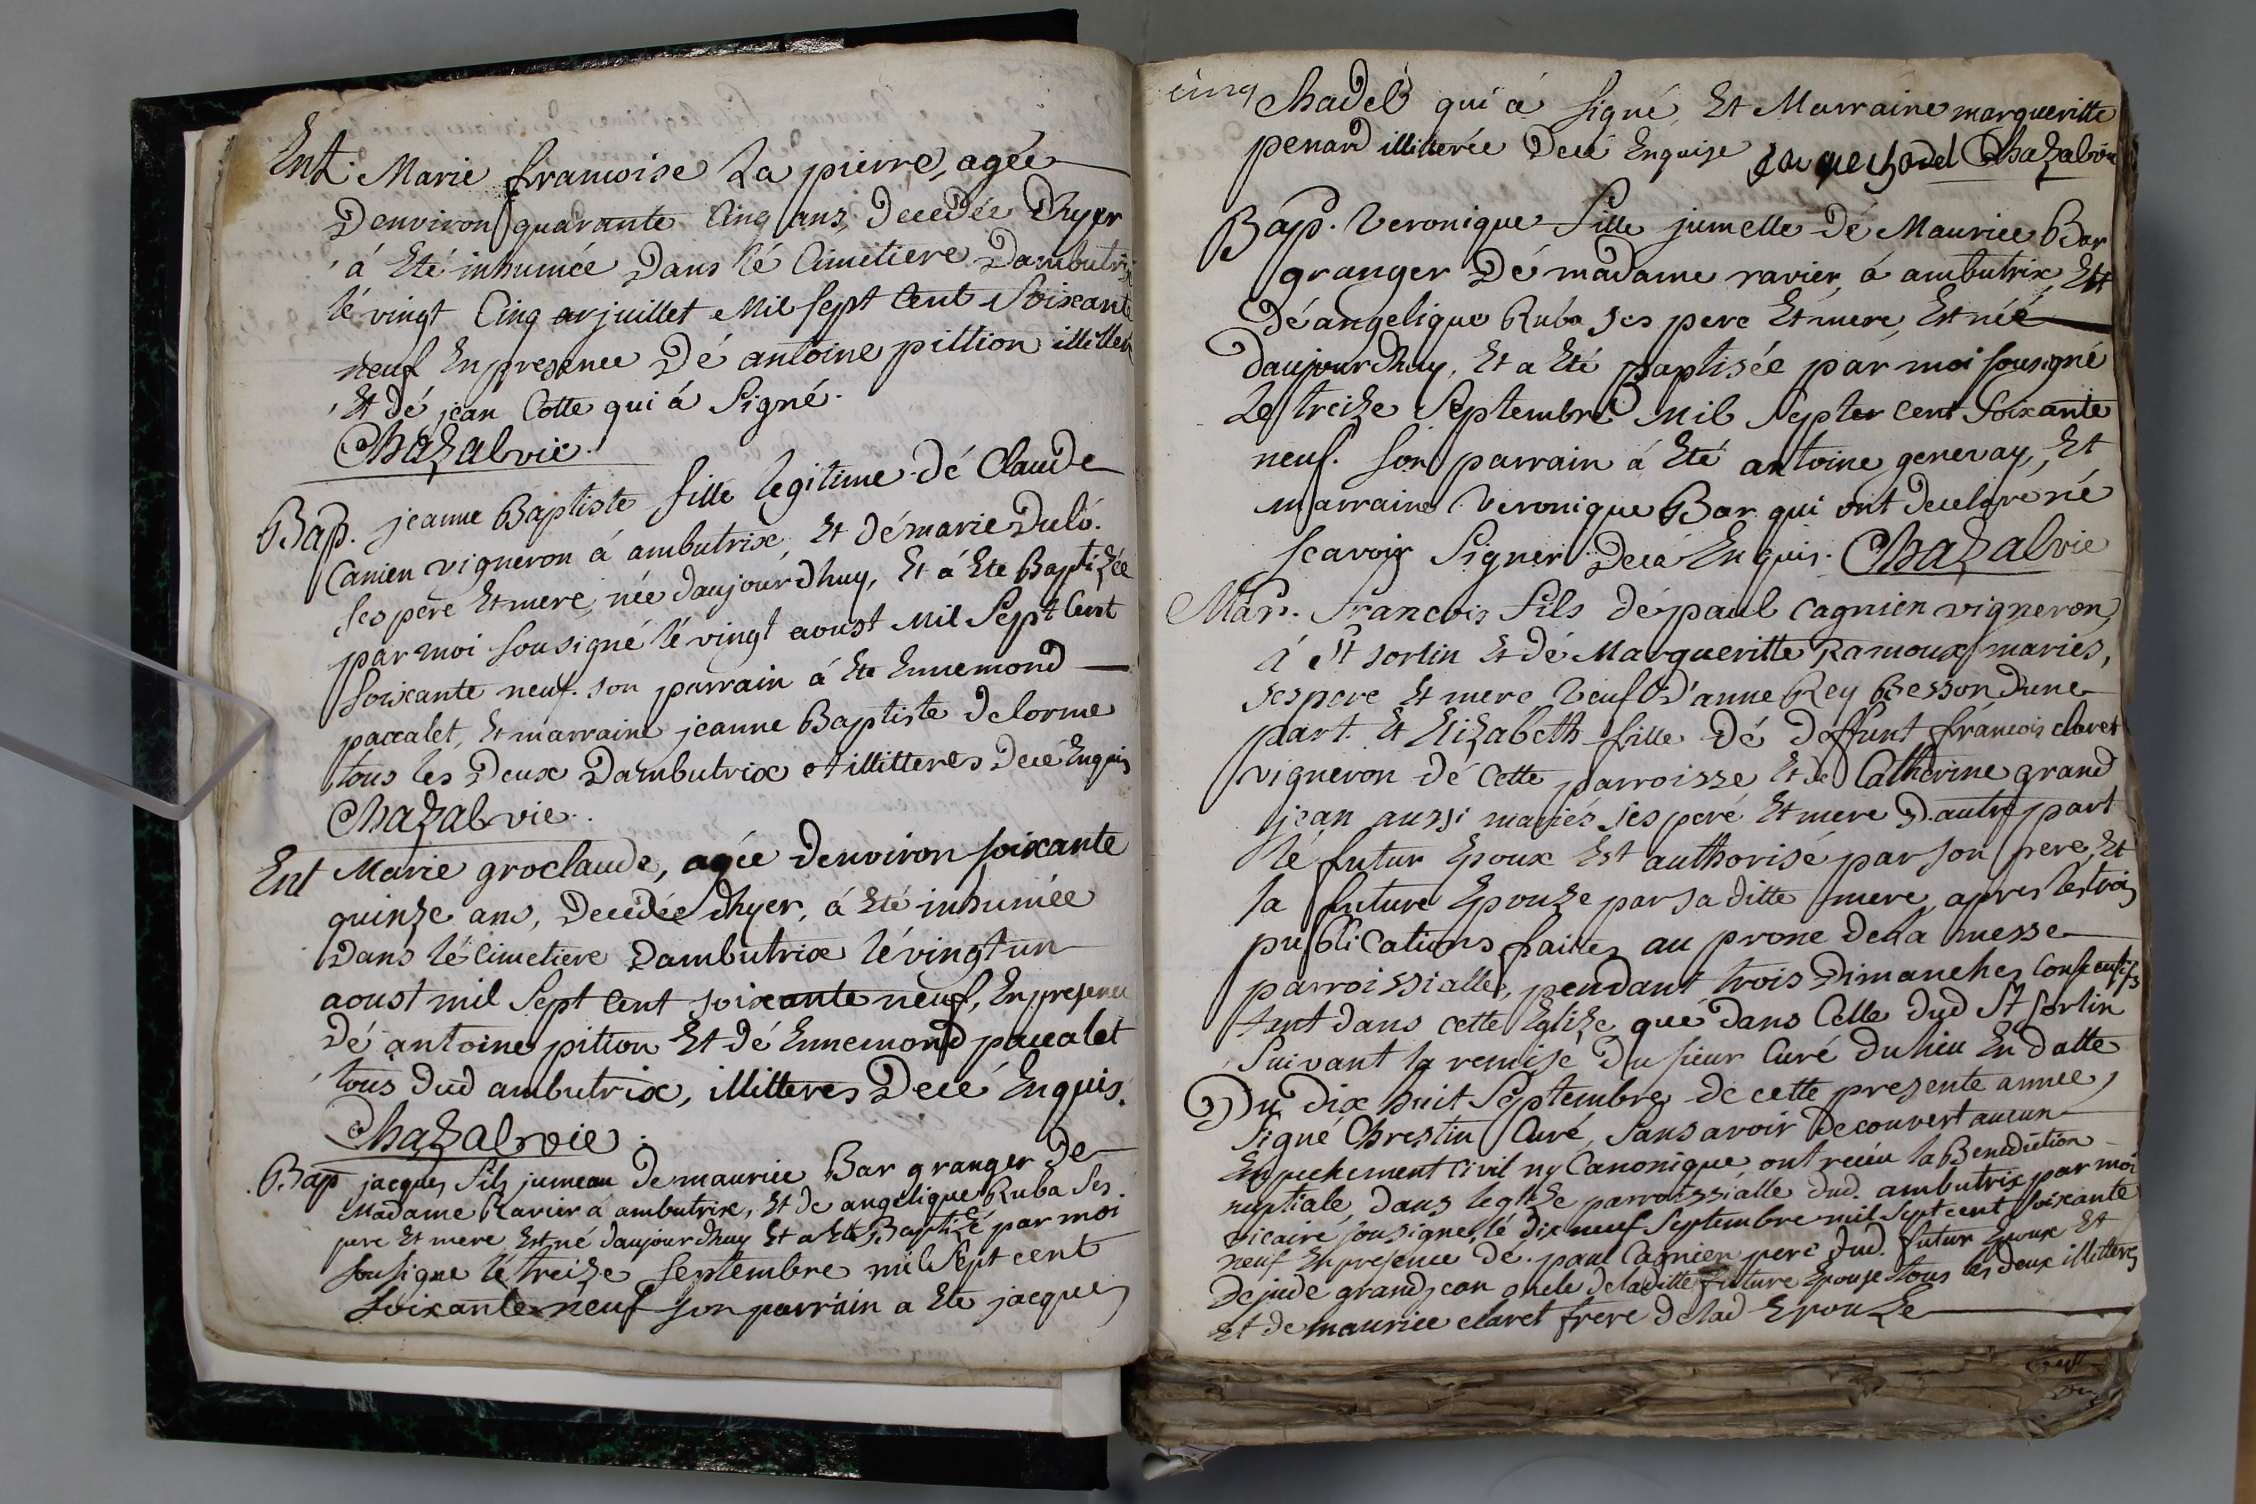 Ent. Marie francoise La pierre, agée
Denviron quarante Cinq ans, Decedée Dhyer
á Eté inhumée Dans lé Cimetiere Dambutrix
lé vingt Cinq juillet Mil Sept Cent Soixante
neuf En presence Dé antoine pittion illitter
Et dé jean Cotte qui á Signé.
Chazalvie.
Bap. jeanne Baptiste fille legitime dé Claude
Canien vigneron á ambutrix, Et dé marie Duló.
Ses pere Et mere, née daujourdhuy, Et á Ete Baptizée
par moi Sousigné lé vingt aoust Mil Sept Cent
Soixante neuf. son parrain á Ete Ennemond
paccalet, Et marraine jeanne Baptiste Delorme
tous les Deux Dambutrix et illitteres Decé Enquis
Chazalvie.
Ent Marie groclaude, agée Denviron soixante
quinze ans, Decedée Dhyer, á Eté inhumée
Dans lé Cimetiere Dambutrix lé vingt un
aoust mil Sept Cent soixante neuf, En presence
Dé antoine pition Et dé Ennemond paccalet
tous Dud ambutrix, illitteres Decé Enquis.
Chazalvie.
Bap jacques fils jumeau De maurice Bar granger De
Madame Ravier á ambutrix, Et de angelique Ruba Ses
pere Et mere Est né daujourdhuy Et a Eté Baptizé par moi
Sousigné lé treize Septembre mil Sept cent
Soixante neuf son parrain a Ete jacques
cinq
Chadel qui á signé, Et Marraine margueritte
penard illitterée Decé Enquise jaque chadel Chazalvie
Bap. Veronique fille jumelle Dé Maurice Bar
granger Dé madame ravier á ambutrix, Et
dé angelique Ruba ses pere Et mere, Est née
daujourdhuy, Et a Eté Baptisée par moi sousigné
Le treize Septembre Mil Sept cent Soixante
neuf. Son parrain á Eté antoine genevay, Et
marraine Veronique Bar qui ont Declaré né
scavoir Signer Decé Enquis. Chazalvie
Mar. francois fils dé paul Cagnien vigneron
á St sorlin Et dé Margueritte Ramoux mariés,
ses pere Et mere, Veuf D'anne Rey Besson Dune
part. Et Elizabeth fille Dé Deffunt francois claret
vigneron dé Cette parroisse Et de Catherine grand
jean aussi mariés ses peré Et mere D'autre part
lé futur Epoux Est authorisé par son pere, Et
la future Epouze par sa ditte mere, apres les trois
publications faites au prone de la messe
parroissialle, pendant trois Dimanches Consecutifs
tant dans cette Eglize que dans Celle Dud St sorlin
Suivant la remise Du sieur Curé du lieu En datte
Du Dix huit Septembre de cette presente année,
Signé Chrestin Curé, Sans avoir Decouvert aucun
Enpechement Civil ny Canonique, ont recéu la Benediction
nuptiale, dans leglize parroissialle dud. ambutrix par moi
vicaire sousigné, lé dix neuf Septembre mil sept cent soixante
neuf En presence dé paul Cagnien peré dud. futur Epoux Et
De jude grand jean oncle de laditte future Epouse tous les deux illitteres
Et de maurice claret frere de lad Epouze